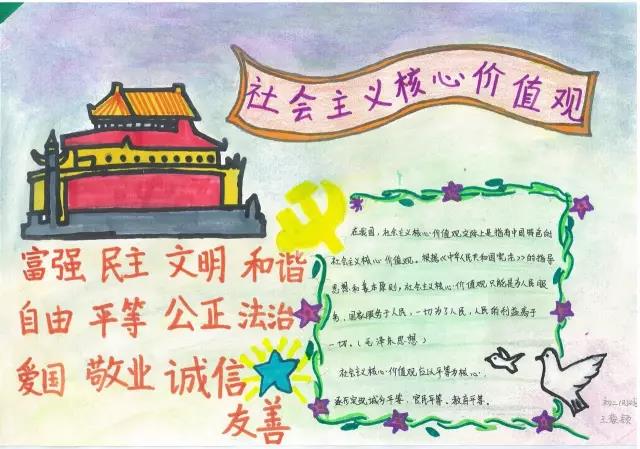 社会主义核心价值观
富强 民主 文明 和谐
自由 平等 公正 法治
爱国 敬业 诚信
友善
在我国，社会主义核心价值观实际上是指有中国特色的
社会主义核心价值观。根据《中华人民共和国宪法》的指导
思想和基本原则，社会主义核心价值观只能是为人民服
务，国家服务于人民，一切为了人民，人民的利益高于
一切。（毛泽东思想）
社会主义核心价值观应以平等为核心，
逐步实现城乡平等，官民平等，教育平等。